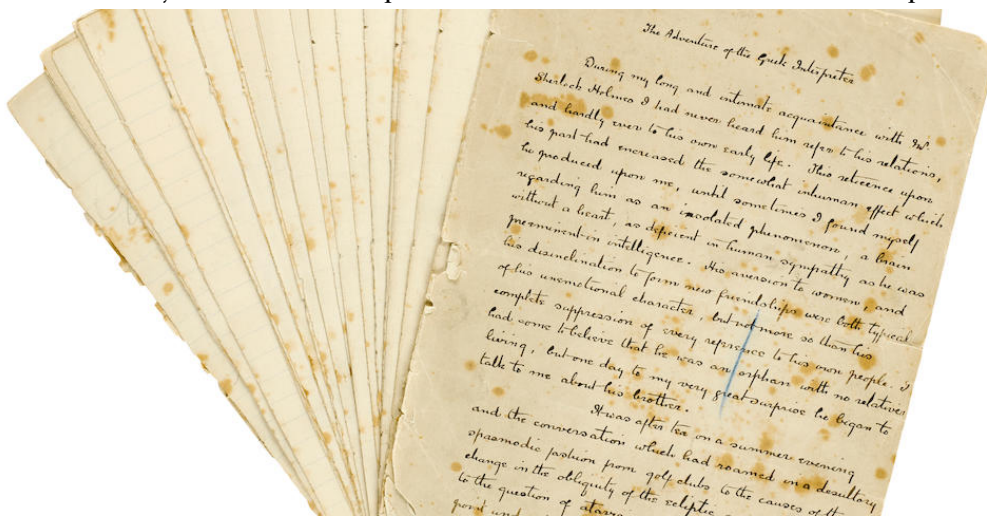 The Adventure of the Greek Interpreter
During my long and intimate acquaintance with Mr
Sherlock Holmes I had never heard him refer to his relations,
and hardly ever to his own early life. This reticence upon
his part had encreased the somewhat inhuman effect which
he produced upon me, until sometimes I found myself
regarding him as an isolated phenomenon, a brain
without a heart, as deficient in human sympathy as he was
preeminent in intelligence. His aversion to women, and
his disinclination to form new friendships were both typical
of his unemotional character, but not more so than his
complete suppression of every reference to his own people. I
had come to believe that he was an orphan with no relatives
living, but one day to my very great surprise he began to
talk to me about his brother.
It was after tea on a summer evening
and the conversation which had roamed in a desultory
spasmodic fashion from golf clubs to the causes of the
change in the obliquity of the ecliptic
to the question of